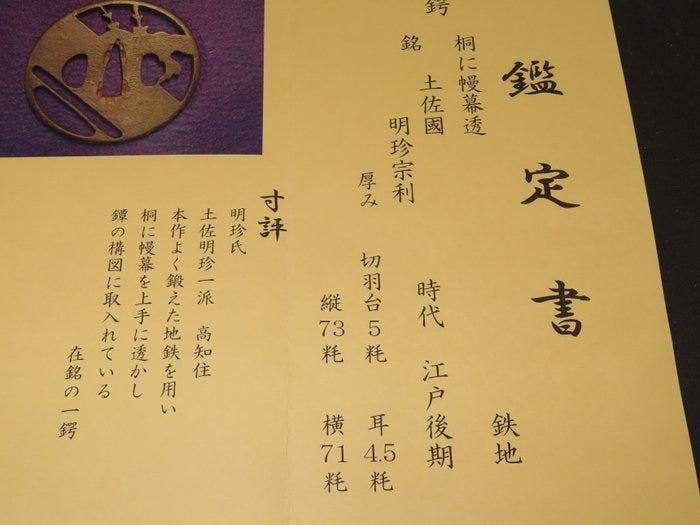 鑑定書
鉄地
桐に幔幕透
鍔
銘　土佐國　時代　江戸後期
明珍宗利
厚み　切羽台5粍　耳4.5粍
縦73粍　横71粍
寸評
明珍氏
土佐明珍一派　高知住
本作よく鍛えた地鉄を用い
桐に幔幕を上手に透かし
鐔の構図に取入れている
在銘の一鍔